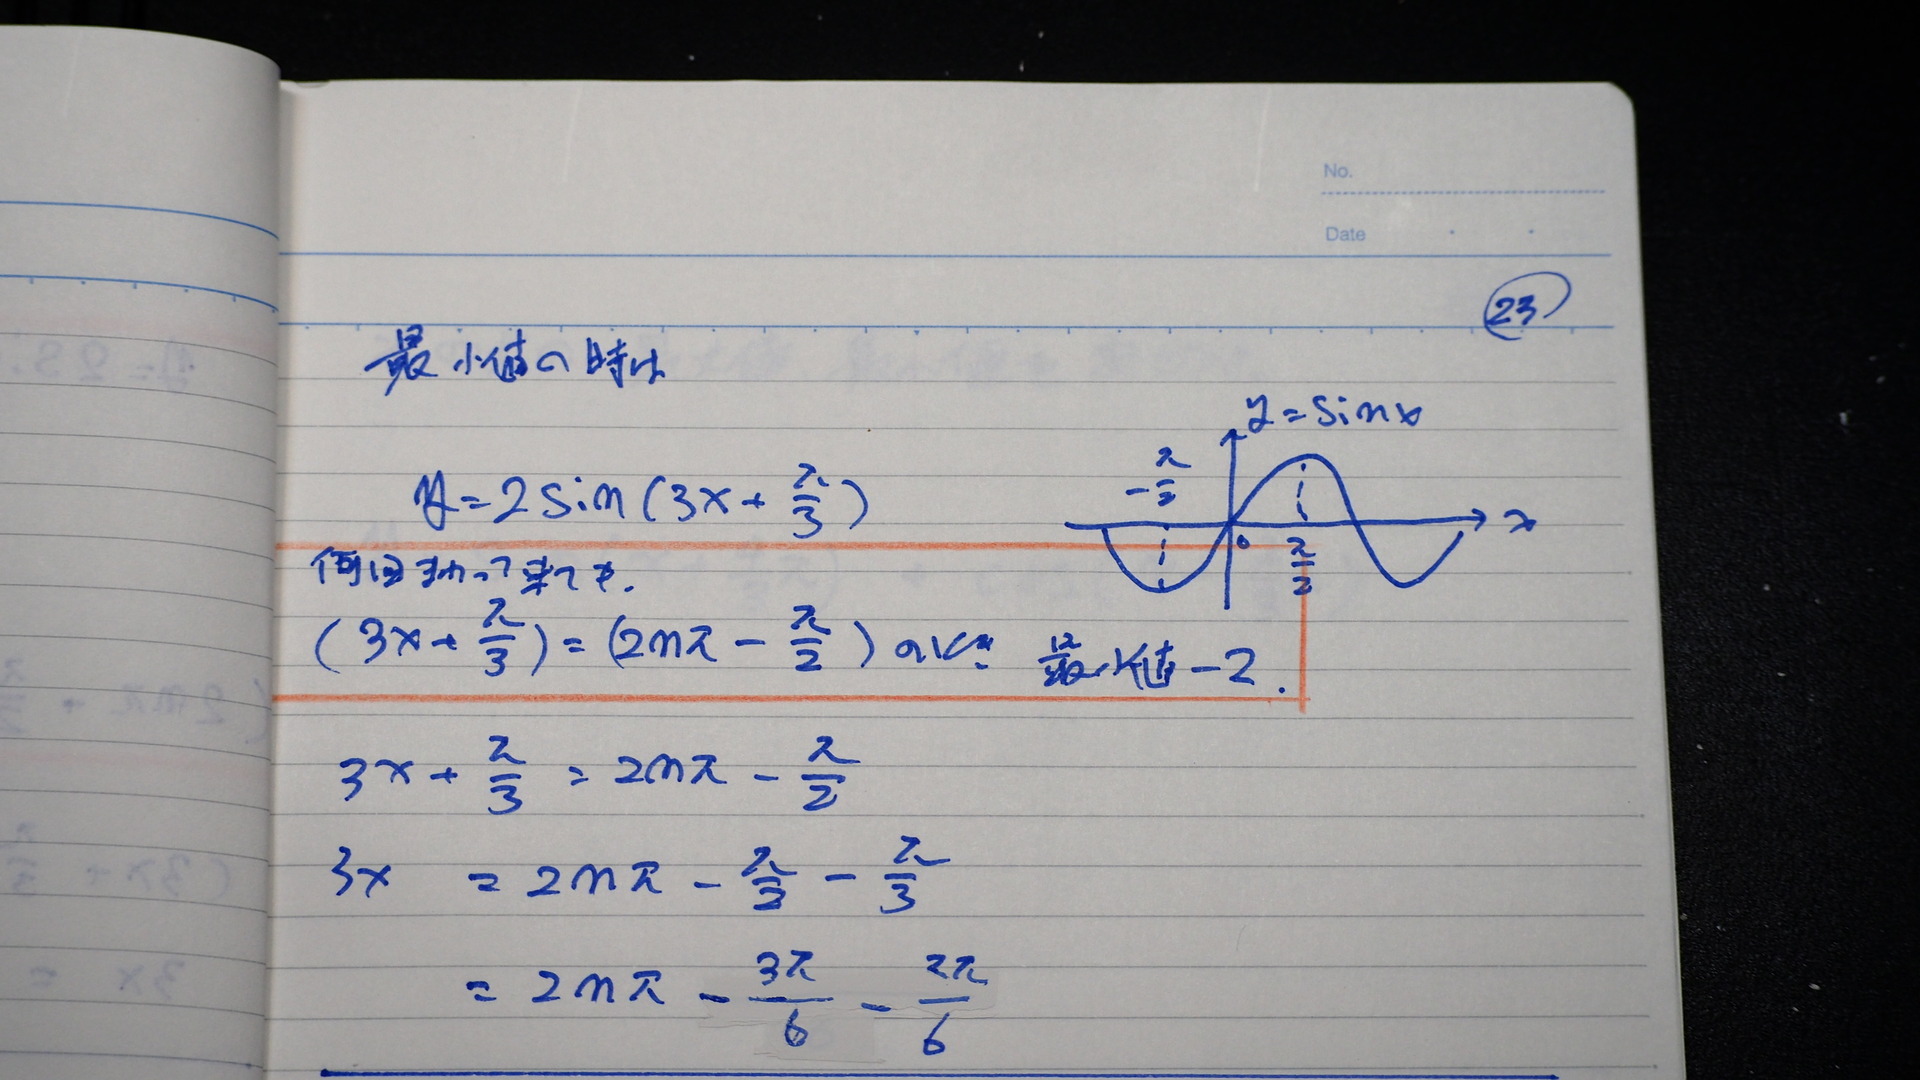 No.
Date
23
最小値の時は
y = sin x
-π/2
0
π/2
x
y = 2 sin (3x + π/3)
何回まわって来ても.
(3x + π/3) = (2nπ - π/2) のとき 最小値 -2.
3x + π/3 = 2nπ - π/2
3x = 2nπ - π/2 - π/3
= 2nπ - 3π/6 - 2π/6